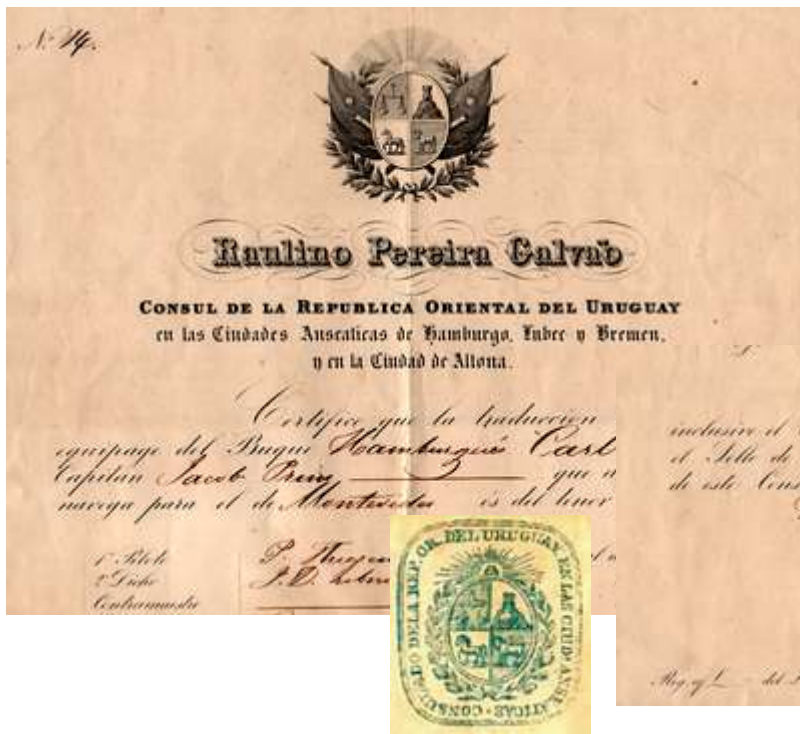 Nº 14.
Raulino Pereira Galvaõ
CONSUL DE LA REPUBLICA ORIENTAL DEL URUGUAY
en las Ciudades Anseaticas de Hamburgo, Lubec y Bremen,
y en la Ciudad de Altona.
Certifico que la traduccion
equipage del Buque Hamburgués Carl
Capitan Jacob que
navega para el de Montevideo es del tenor
1º Piloto P.
2º Dicho J. D.
Contramaestre
inclusive el
el Sello de
de este
Reg. del
CONSULADO DE LA REP. OR. DEL URUGUAY EN LAS CIUD. ANSEATICAS